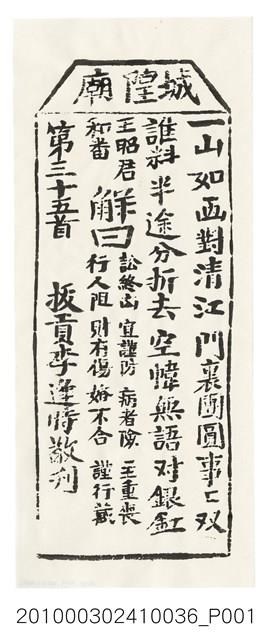 城隍廟
一山如画對清江門裏團圓事〻双
誰料半途分折去空幃無語对銀缸
王昭君和番
解曰
訟終凶宜謹防病者險主重喪
行人阻財有傷婚不合謹行藏
第三十五首
拔貢李逢時敬刋
201000302410036_P001